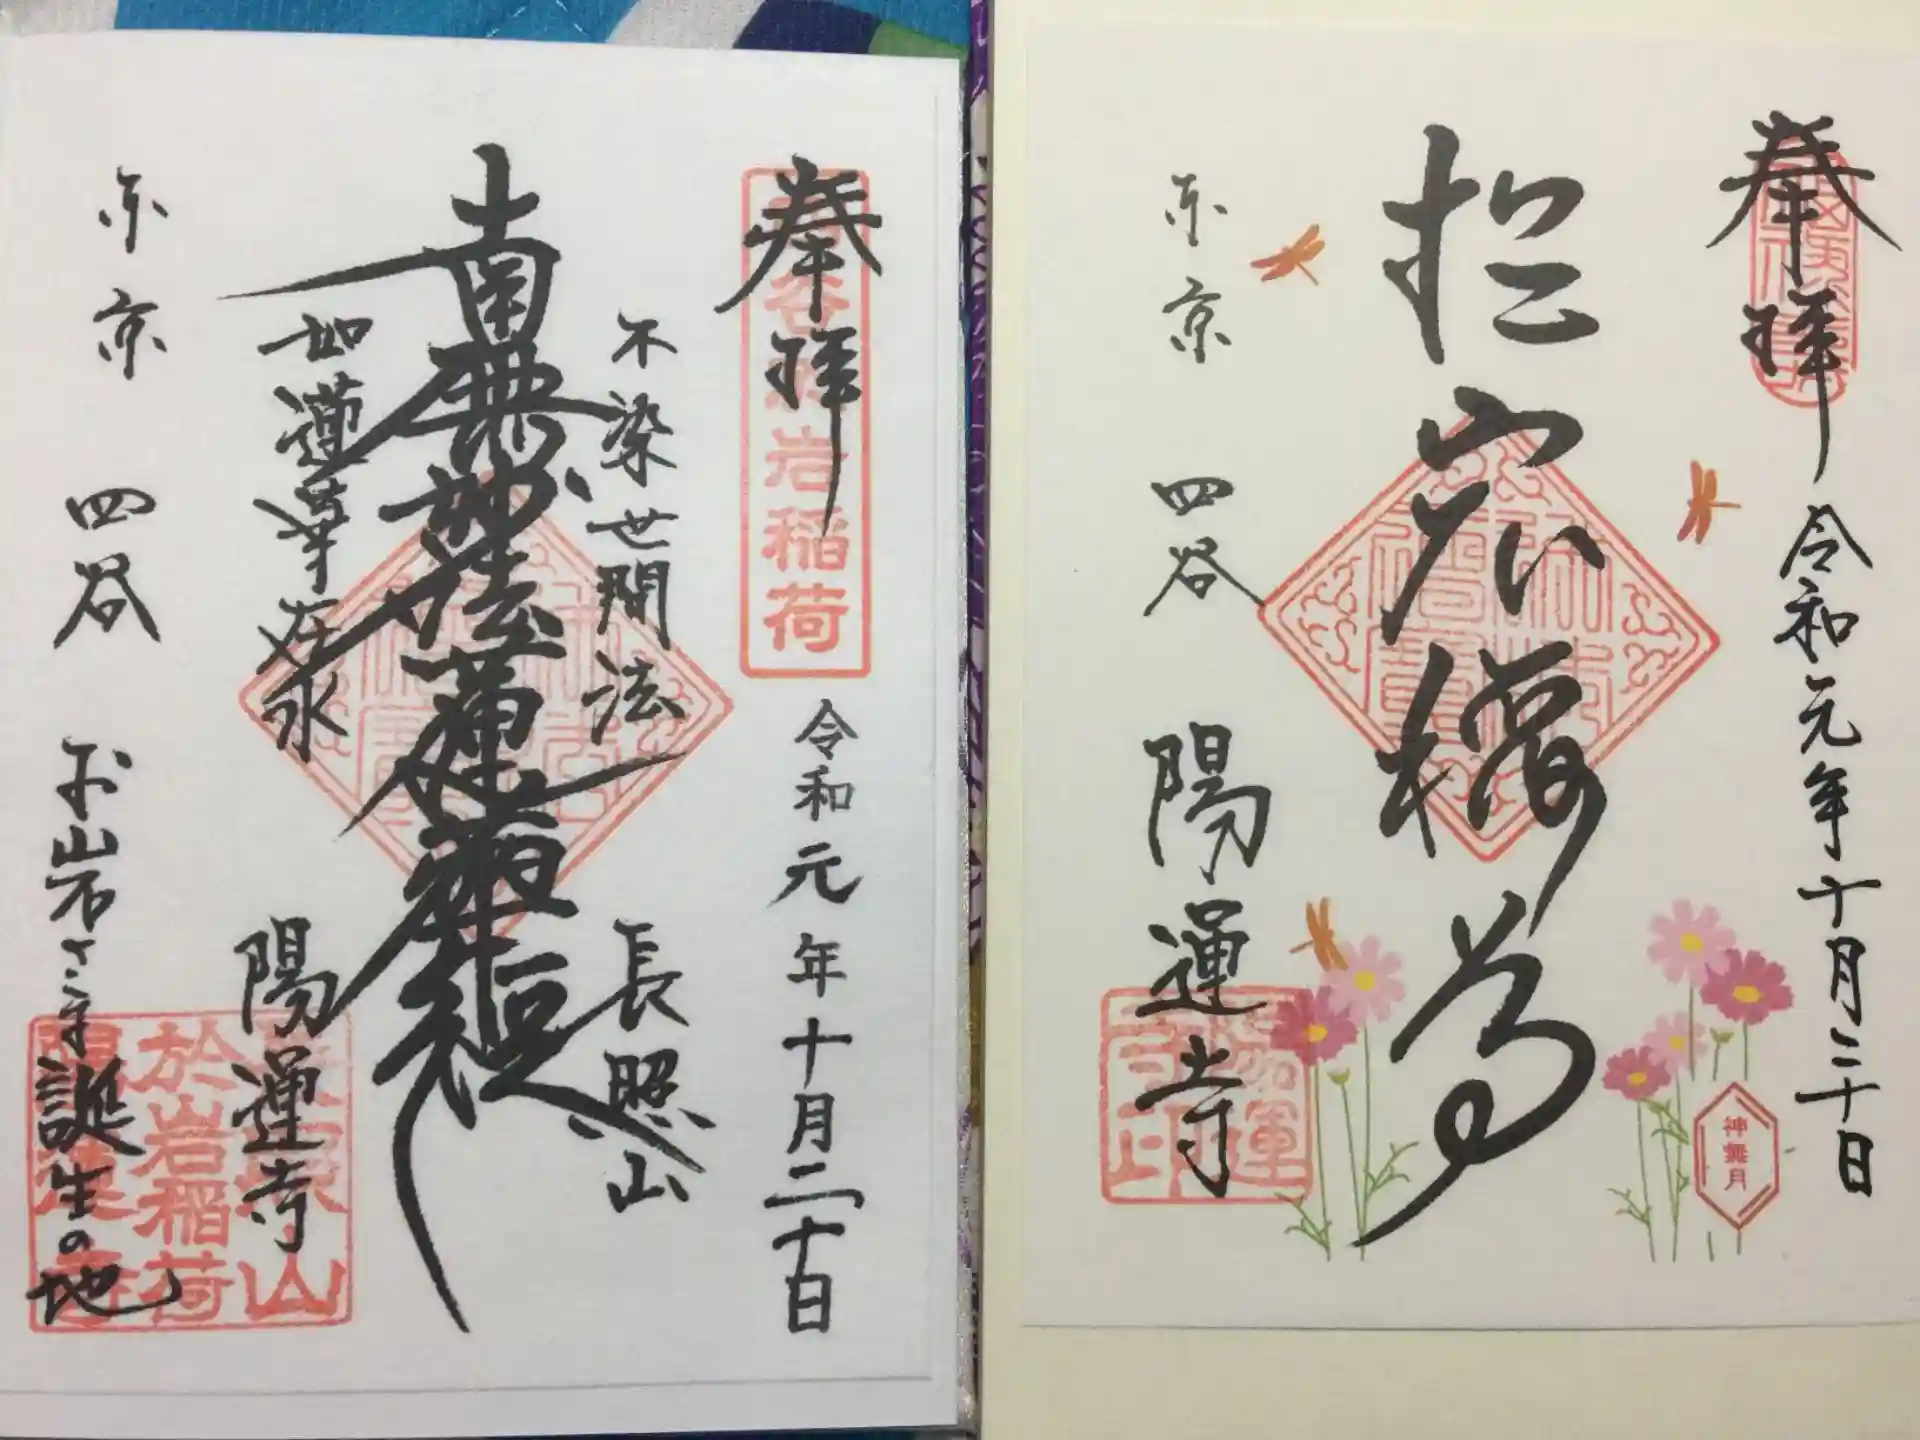 奉拝
令和元年十月二十日
不染世間法
長照山
南無妙法蓮華経
如蓮華在水
陽運寺
東京 四谷 お岩さま誕生の地
於岩稲荷
奉拝
令和元年十月二十日
於岩稲荷
東京 四谷 陽運寺
神無月